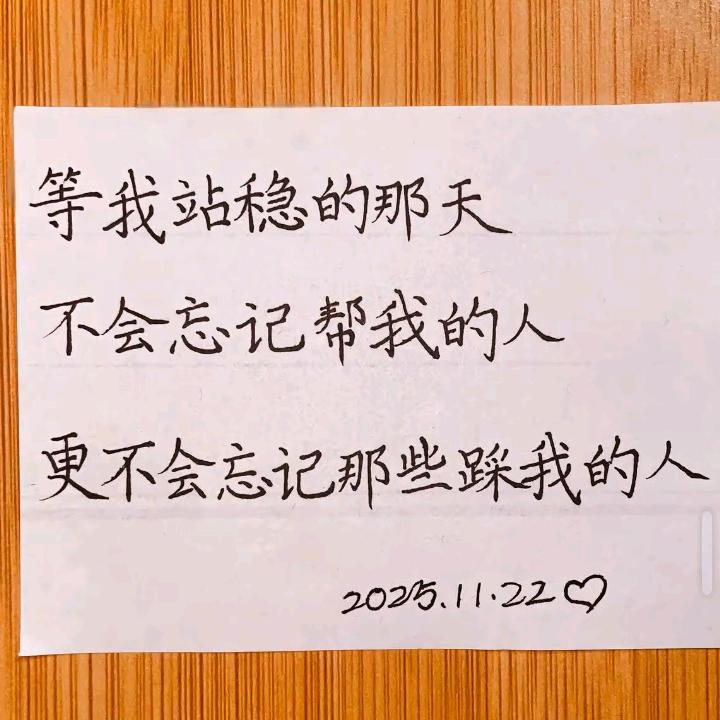 等我站稳的那天
不会忘记帮我的人
更不会忘记那些踩我的人
2025.11.22♡